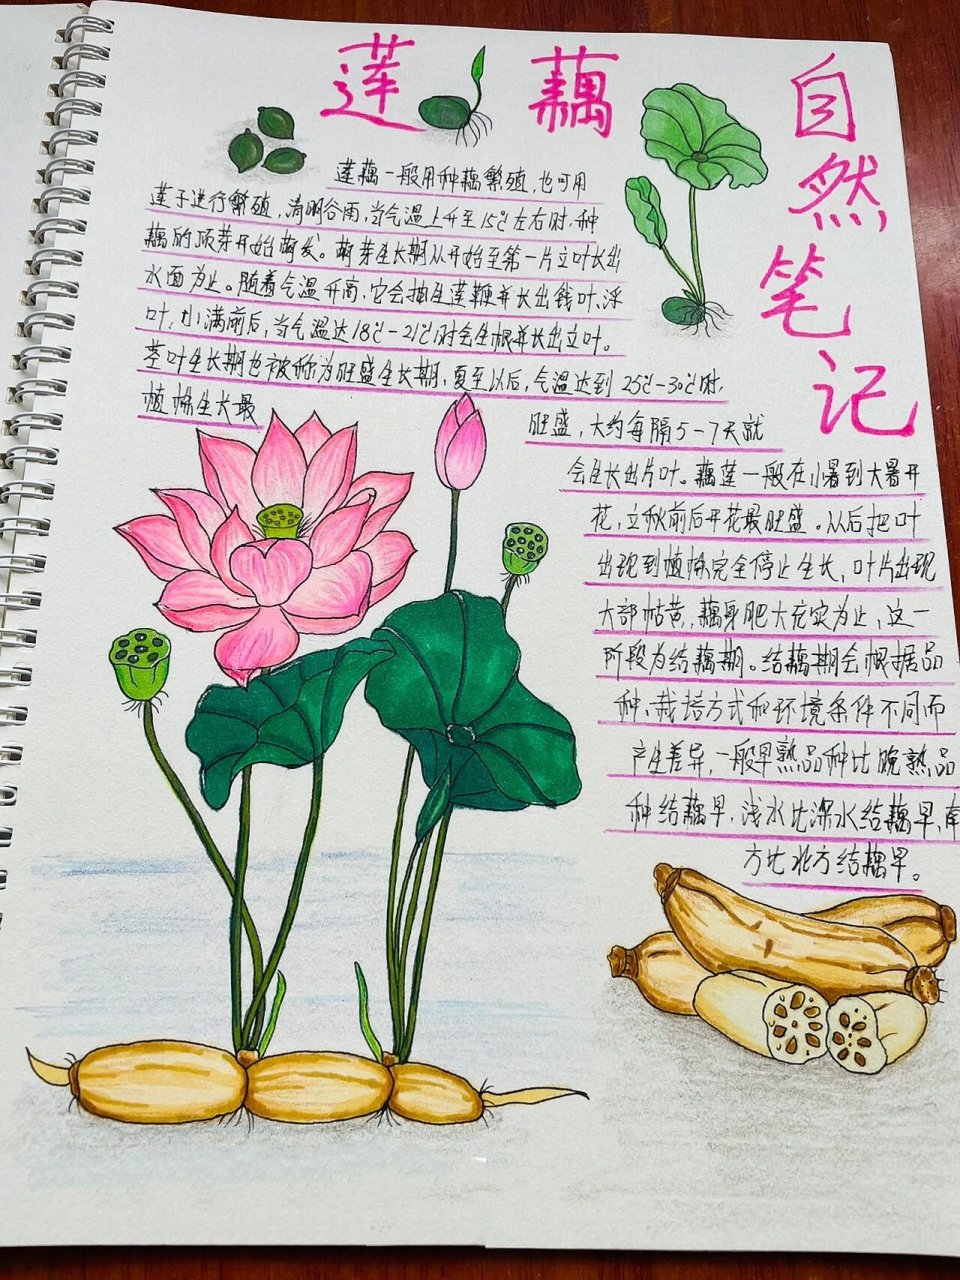 莲藕
自然笔记
莲藕一般用种藕繁殖,也可用
莲子进行繁殖,清明谷雨,当气温上升至15℃左右时,种
藕的顶芽开始萌发。萌芽生长期从开始至第一片立叶长出
水面为止。随着气温升高,它会抽生莲鞭并长出钱叶、浮
叶,小满前后,当气温达18℃-21℃时会生根并长出立叶。
茎叶生长期也被称为旺盛生长期,夏至以后,气温达到25℃-30℃时,
植株生长最
旺盛,大约每隔5-7天就
会生长出片叶。藕莲一般在小暑到大暑开
花,立秋前后开花最旺盛。从后把叶
出现到植株完全停止生长,叶片出现
大部枯黄,藕身肥大充实为止,这一
阶段为结藕期。结藕期会根据品
种、栽培方式和环境条件不同而
产生差异,一般早熟品种比晚熟品
种结藕早,浅水比深水结藕早,南
方比北方结藕早。